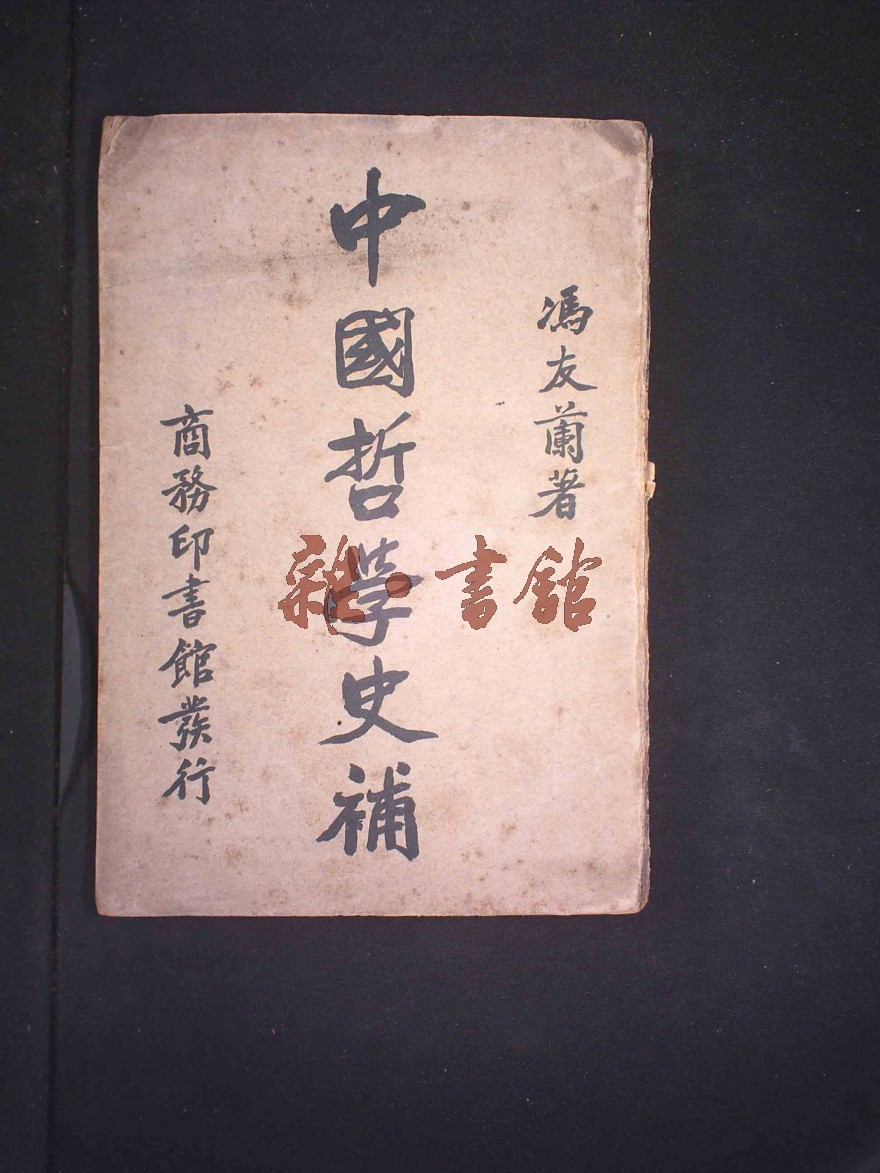 馮友蘭著
中國哲學史補
商務印書館發行
雜·書館